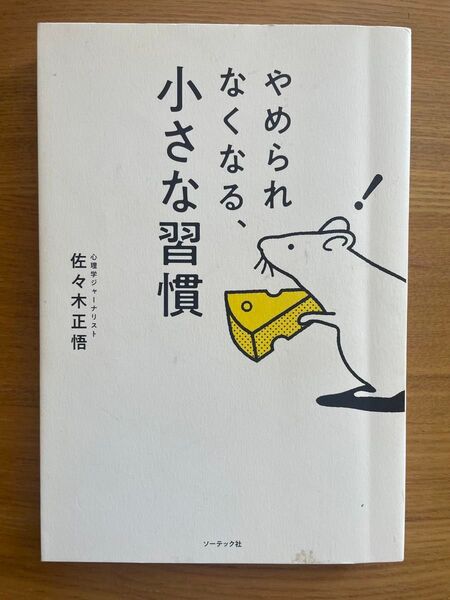 やめられ
なくなる、
小さな習慣
心理学ジャーナリスト
佐々木正悟
!
ソーテック社